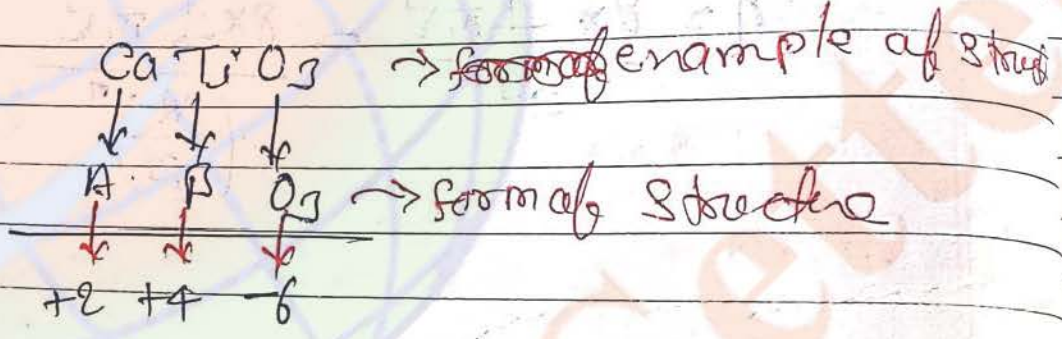 Ca Ti O3 → example of struct
A B O3 → form of Structure
+2 +4 -6